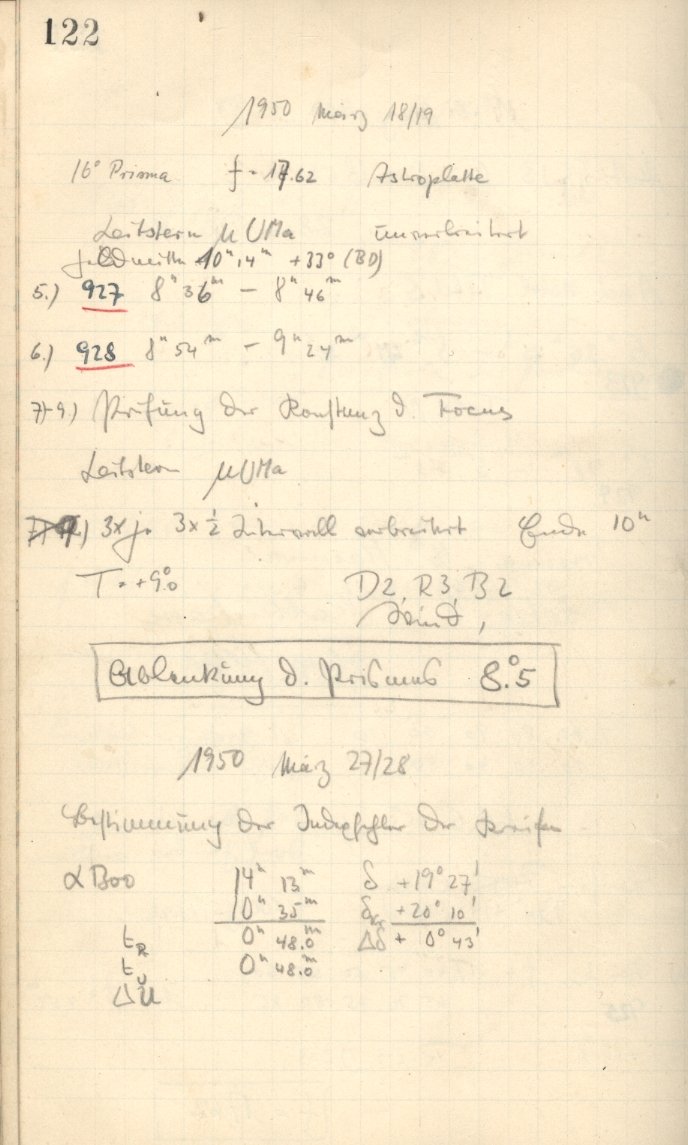 122
1950 März 18/19
16° Prisma f = 17.62 Astroplatte
Leitstern μ UMa unverbreitert
Feldmitte 10ʰ 14ᵐ +33° (BD)
5.) 927 8ʰ 36ᵐ – 8ʰ 46ᵐ
6.) 928 8ʰ 54ᵐ – 9ʰ 24ᵐ
7)-9.) Prüfung der Konstanz d. Focus
Leitstern μ UMa
3x je 3 x ½ Intervall verbreitert Ende 10ʰ
T = +9°.0 D2, R3, B2
Wind,
Ablenkung d. Prismas 8°.5
1950 März 27/28
Bestimmung der Indexfehler der Kreise
α Boo 14ʰ 13ᵐ δ +19° 27'
0ʰ 35ᵐ δKr +20° 10'
tR 0ʰ 48.0ᵐ Δδ + 0° 43'
tU 0ʰ 48.0ᵐ
ΔU